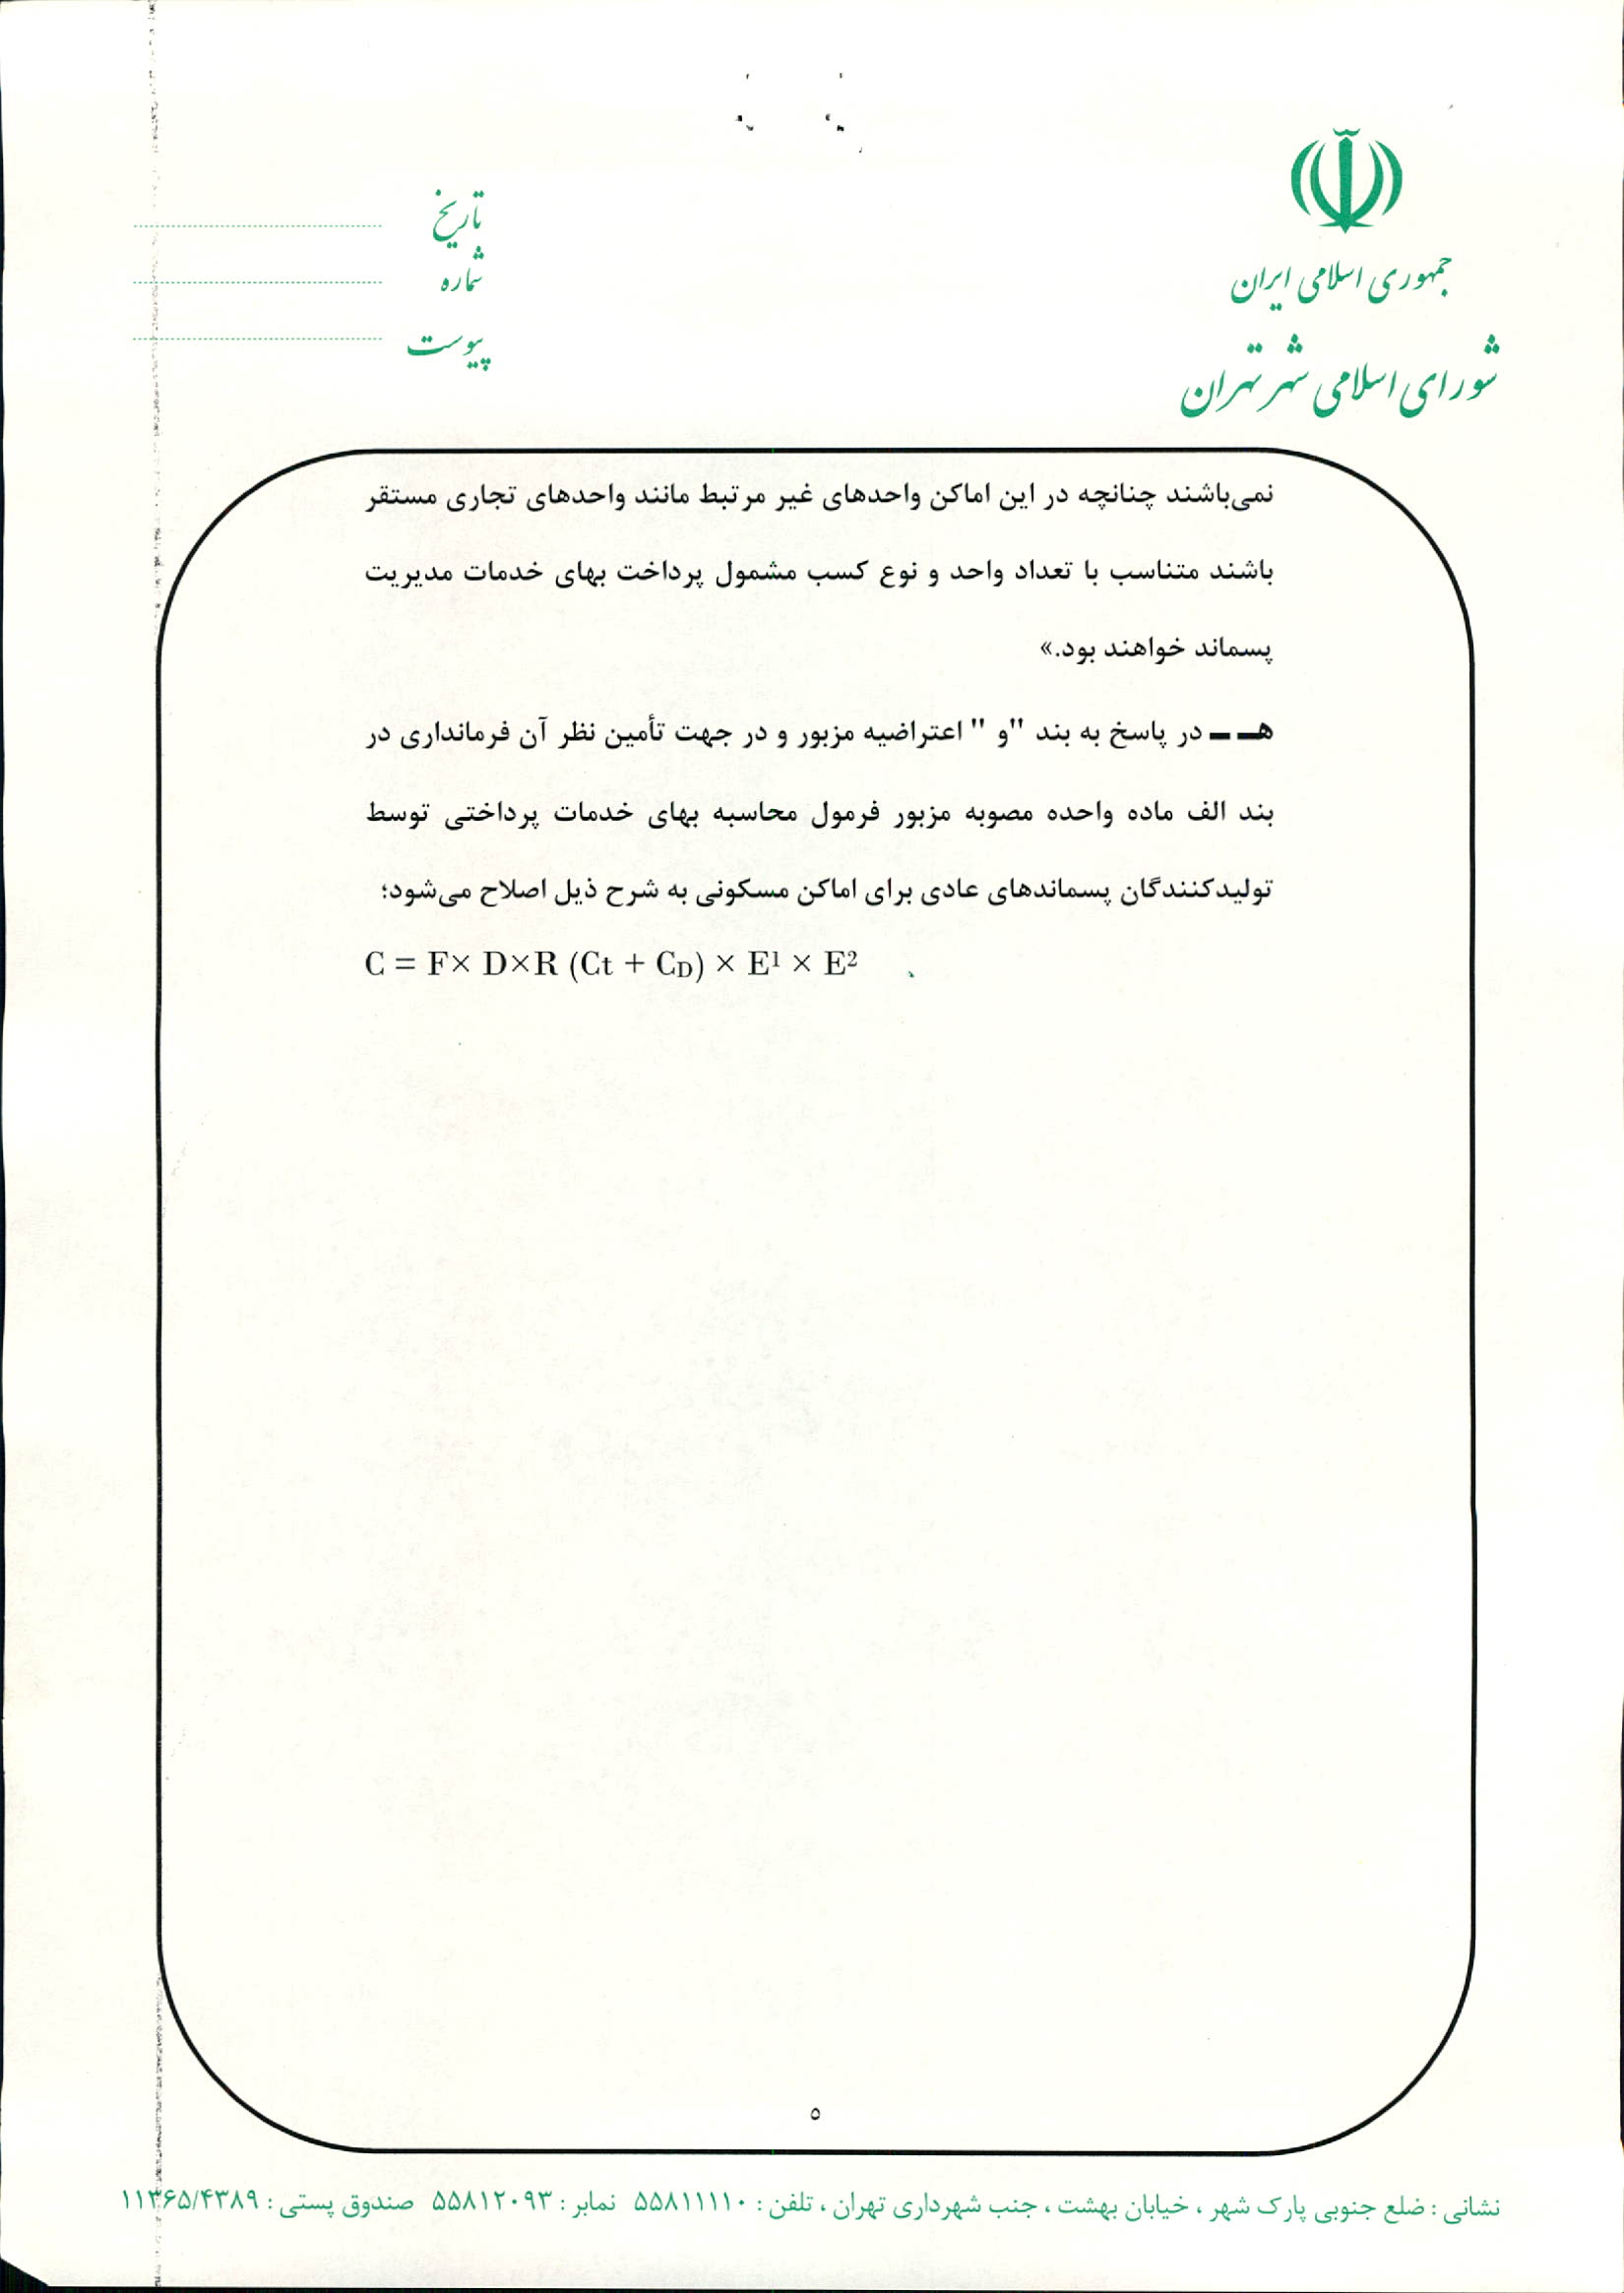 جمهوری اسلامی ایران
شورای اسلامی شهر تهران
تاریخ
شماره
پیوست
نمی‌باشند چنانچه در این اماکن واحدهای غیر مرتبط مانند واحدهای تجاری مستقر
باشند متناسب با تعداد واحد و نوع کسب مشمول پرداخت بهای خدمات مدیریت
پسماند خواهند بود.»
هـ ـ در پاسخ به بند "و " اعتراضیه مزبور و در جهت تأمین نظر آن فرمانداری در
بند الف ماده واحده مصوبه مزبور فرمول محاسبه بهای خدمات پرداختی توسط
تولیدکنندگان پسماندهای عادی برای اماکن مسکونی به شرح ذیل اصلاح می‌شود؛
C = F× D×R (Ct + C_D) × E¹ × E²
۵
نشانی : ضلع جنوبی پارک شهر ، خیابان بهشت ، جنب شهرداری تهران ، تلفن : ۵۵۸۱۱۱۱۰ نمابر : ۵۵۸۱۲۰۹۳ صندوق پستی : ۱۱۳۶۵/۴۳۸۹